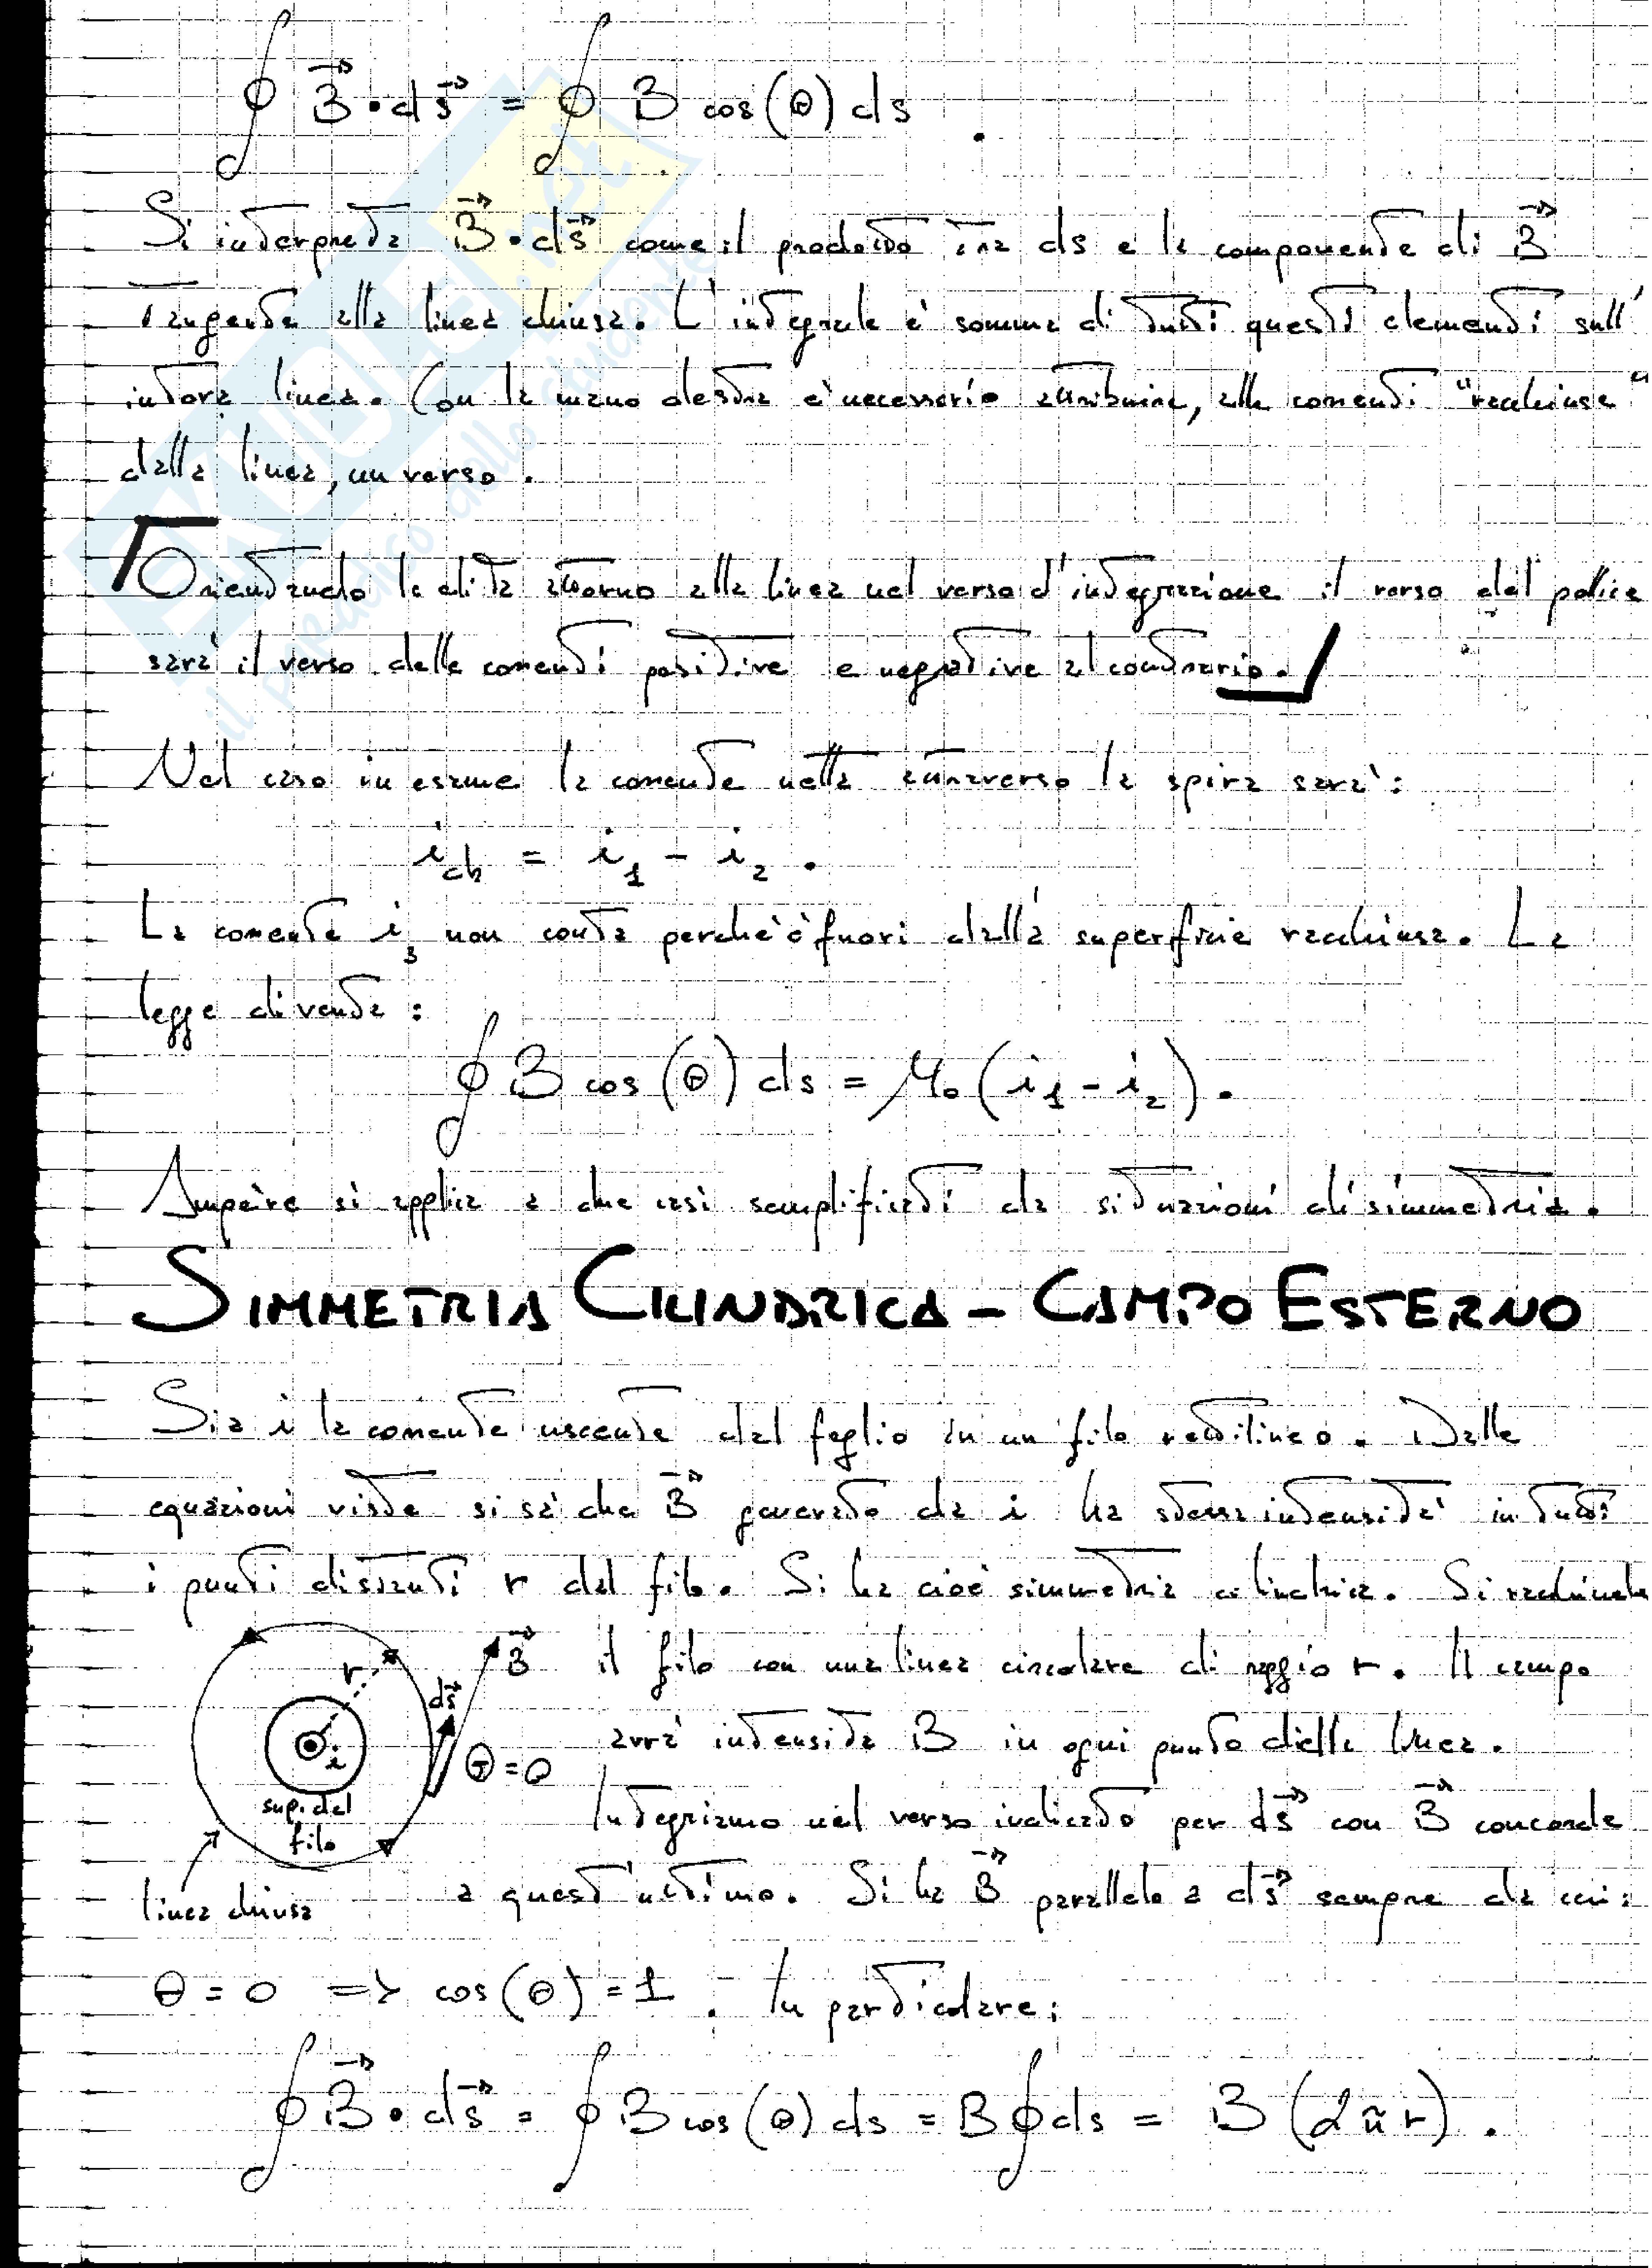 ∮ B⃗ • ds⃗ = ∮ B cos(θ) ds .
Si interpreta B⃗ • ds⃗ come il prodotto tra ds e la componente di B⃗
tangente alla linea chiusa. L'integrale è somma di tutti questi elementi sull'
intera linea. Con la mano destra è necessario attribuire, alle correnti "racchiuse"
dalla linea, un verso.
Orientando le dita attorno alla linea nel verso d'integrazione il verso del pollice
sarà il verso delle correnti positive e negative al contrario.
Nel caso in esame la corrente netta attraverso la spira sarà:
i_ch = i₁ - i₂ .
La corrente i₃ non conta perchè è fuori dalla superficie racchiusa. La
legge diventa:
∮ B cos(θ) ds = μ₀ (i₁ - i₂) .
Ampère si applica a due casi semplificati da situazioni di simmetria.
SIMMETRIA CILINDRICA - CAMPO ESTERNO
Sia i la corrente uscente dal foglio in un filo rettilineo. Dalle
equazioni viste si sà che B⃗ generato da i ha stessa intensità in tutti
i punti distanti r dal filo. Si ha cioè simmetria cilindrica. Si racchiuda
il filo con una linea circolare di raggio r. Il campo
avrà intensità B in ogni punto della linea.
Integriamo nel verso indicato per ds⃗ con B⃗ concorde
a quest'ultimo. Si ha B⃗ parallelo a ds⃗ sempre da cui:
r
B⃗
ds⃗
θ = 0
i
sup. del
filo
linea chiusa
θ = 0 => cos(θ) = 1 . In particolare:
∮ B⃗ • ds⃗ = ∮ B cos(θ) ds = B ∮ ds = B (2πr) .